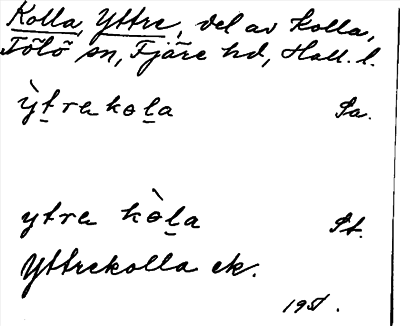 Kolla, Yttre, del av Kolla,
Tölö sn, Fjäre hd, Hall. l.
ỳtrekola Sa.
ytre kòla St.
Yttrekolla ek.
1951.